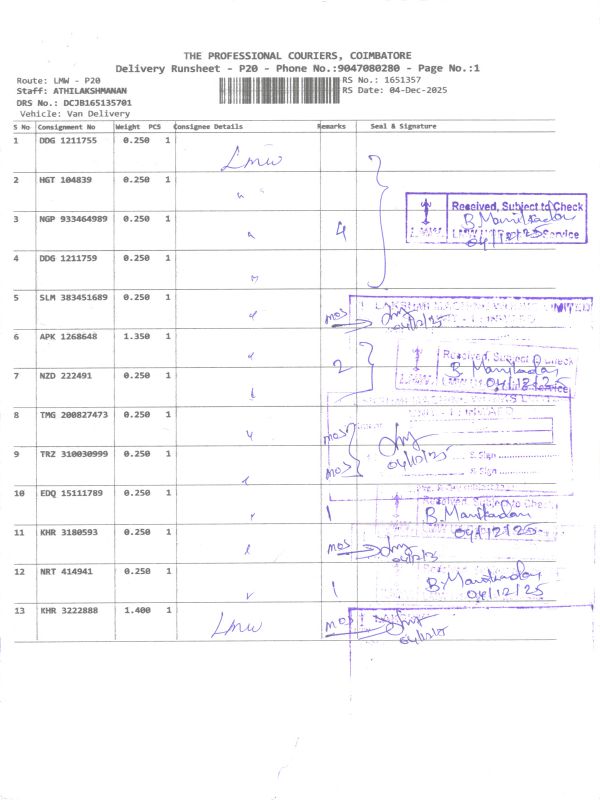 THE PROFESSIONAL COURIERS, COIMBATORE
Delivery Runsheet - P20 - Phone No.:9047080280 - Page No.:1
Route: LMW - P20
RS No.: 1651357
Staff: ATHILAKSHMANAN
RS Date: 04-Dec-2025
DRS No.: DCJB165135701
Vehicle: Van Delivery
S No Consignment No Weight PCS Consignee Details Remarks Seal & Signature
1 DDG 1211755 0.250 1 LMW
2 HGT 104839 0.250 1 "
Received, Subject to Check
3 NGP 933464989 0.250 1 " 4 B. Manikadan
04/12/25 Service
4 DDG 1211759 0.250 1 "
5 SLM 383451689 0.250 1 " MOS 04/12/25
6 APK 1268648 1.350 1 " 2 Received, Subject to Check
B. Manikadan
7 NZD 222491 0.250 1 " 04/12/25 Service
8 TMG 200827473 0.250 1 " MOS
9 TRZ 310030999 0.250 1 MOS 04/12/25
S.Sign
10 EDQ 15111789 0.250 1 " 1 B. Manikadan
04/12/25
11 KHR 3180593 0.250 1 " MOS 04/12/25
12 NRT 414941 0.250 1 " 1 B. Manikadan
04/12/25
13 KHR 3222888 1.400 1 LMW MOS
04/12/25